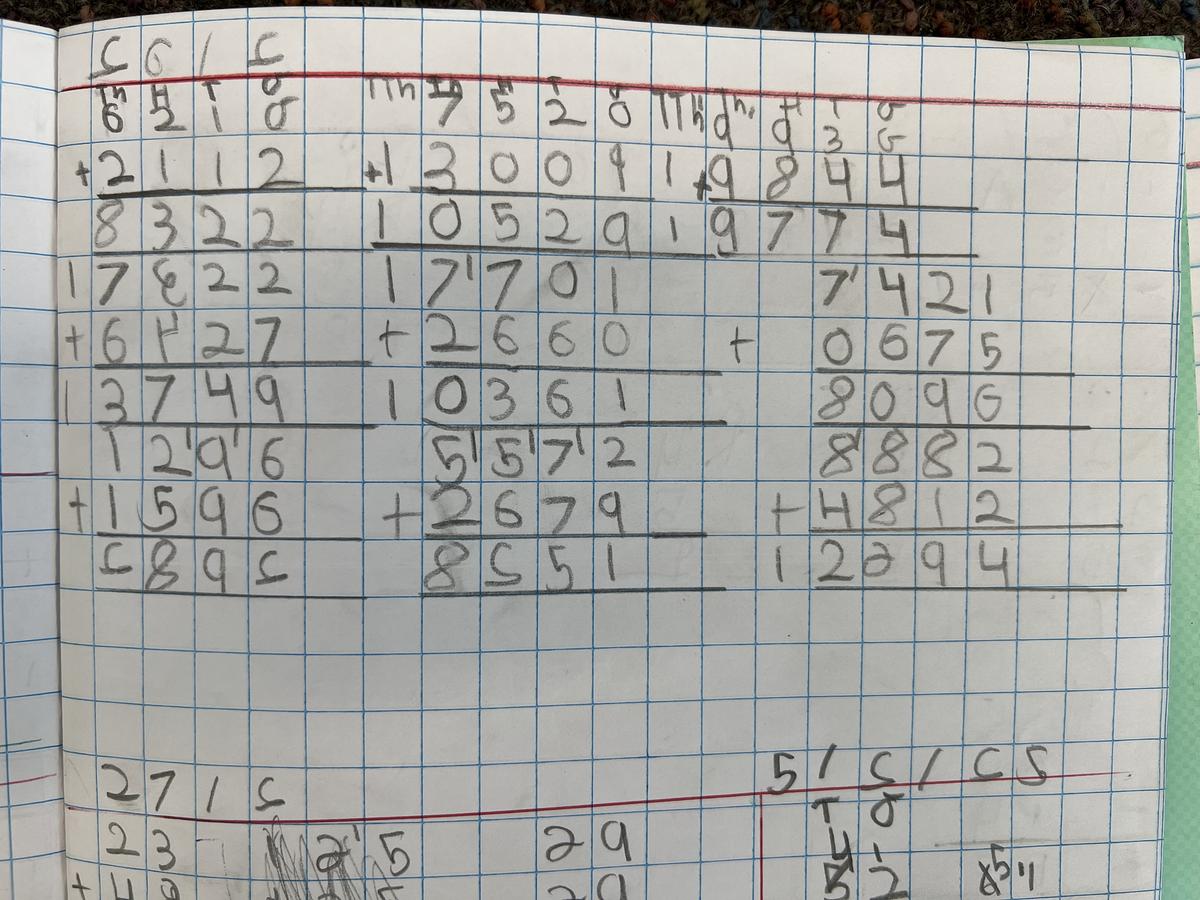 5 6 / 5
Th H T O TTh Th H T O TTh Th H T O
6 2 1 0 7 5 2 0 9 9 3
+2 1 1 2 +1 3 0 0 9 1+9 8 4 4
8 3 2 2 1 0 5 2 9 1 9 7 7 4
1 7 3 2 2 1 7' 7 0 1 7' 4 2 1
+6 4 2 7 + 2 6 6 0 + 0 6 7 5
1 3 7 4 9 1 0 3 6 1 8 0 9 6
1 2' 9' 6 5' 5' 7' 2 8 8 8 2
+1 5 9 6 + 2 6 7 9 + 4 8 1 2
2 8 9 2 8 2 5 1 1 2 6 9 4
2 7 / 5 5 / 5 / 2 5
T O
2 3 2' 5 2 9 4 1
+ 4 5 2 5"